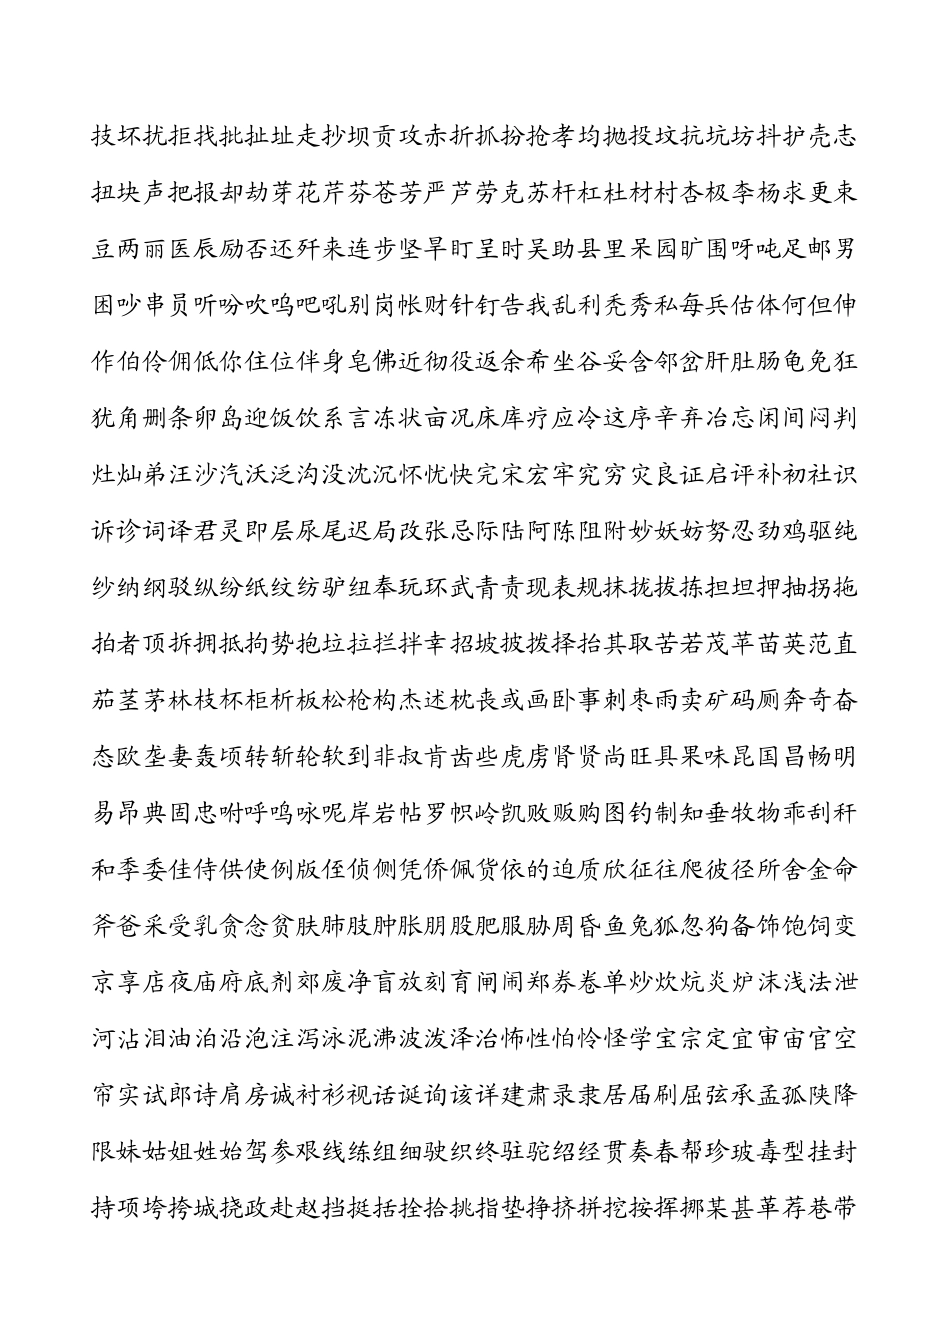 技坏扰拒找批扯址走抄坝贡攻赤折抓扮抢孝均抛投坟抗坑坊抖护壳志
扭块声把报却劫芽花芹芬苍芳严芦劳克苏杆杠杜材村杏极李杨求更束
豆两丽医辰励否还歼来连步坚旱盯呈时吴助县里呆园旷围呀吨足邮男
困吵串员听吩吹呜吧吼别岗帐财针钉告我乱利秃秀私每兵估体何但伸
作伯伶佣低你住位伴身皂佛近彻役返余希坐谷妥含邻岔肝肚肠龟免狂
犹角删条卵岛迎饭饮系言冻状亩况床库疗应冷这序辛弃冶忘闲间闷判
灶灿弟汪沙汽沃泛沟没沈沉怀忧快完宋宏牢究穷灾良证启评补初社识
诉诊词译君灵即层尿尾迟局改张忌际陆阿陈阻附妙妖妨努忍劲鸡驱纯
纱纳纲驳纵纷纸纹纺驴纽奉玩环武青责现表规抹拢拔拣担坦押抽拐拖
拍者顶拆拥抵拘势抱垃拉拦拌幸招坡披拨择抬其取苦若茂苹苗英范直
茄茎茅林枝杯柜析板松枪构杰述枕丧或画卧事刺枣雨卖矿码厕奔奇奋
态欧垄妻轰顷转斩轮软到非叔肯齿些虎虏肾贤尚旺具果味昆国昌畅明
易昂典固忠咐呼鸣咏呢岸岩帖罗帜岭凯败贩购图钓制知垂牧物乖刮秆
和季委佳侍供使例版侄侦侧凭侨佩货依的迫质欣征往爬彼径所舍金命
斧爸采受乳贪念贫肤肺肢肿胀朋股肥服胁周昏鱼兔狐忽狗备饰饱饲变
京享店夜庙府底剂郊废净盲放刻育闸闹郑券卷单炒炊炕炎炉沫浅法泄
河沾泪油泊沿泡注泻泳泥沸波泼泽治怖性怕怜怪学宝宗定宜审宙官空
帘实试郎诗肩房诚衬衫视话诞询该详建肃录隶居届刷屈弦承孟孤陕降
限妹姑姐姓始驾参艰线练组细驶织终驻驼绍经贯奏春帮珍玻毒型挂封
持项垮挎城挠政赴赵挡挺括拴拾挑指垫挣挤拼挖按挥挪某甚革荐巷带